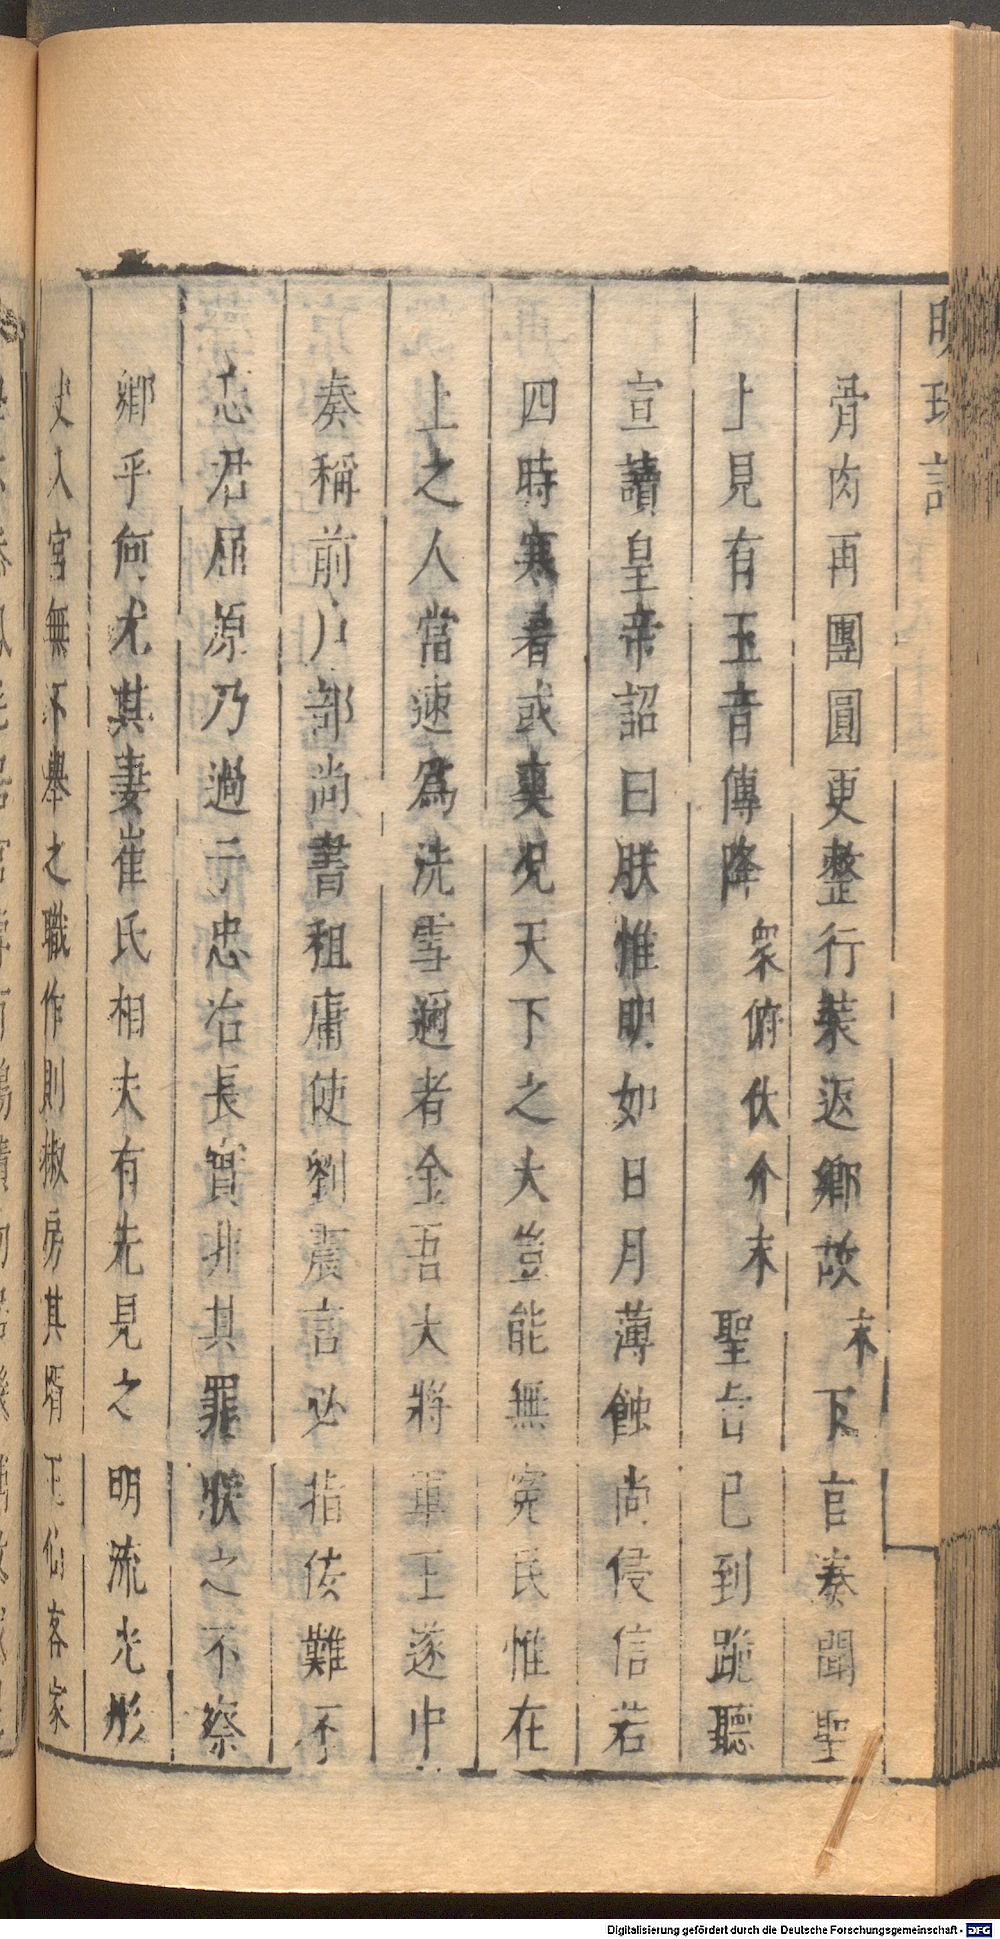 明珠記
骨肉再團圓更整行裝返鄉故末下官奏聞聖
上見有玉音傳降衆俯伏介末聖旨已到跪聽
宣讀皇帝詔曰朕惟明如日月薄蝕尚侵信若
四時寒暑或爽况天下之大豈能無寃民惟在
上之人當速爲洗雪邇者金吾大將軍王遂中
奏稱前户部尚書租庸使劉震言必指佞難不
忘君屈原乃過于忠冶長實非其罪朕之不察
卿乎何尤其妻崔氏相夫有先見之明流光彤
史入宮無不舉之職作則椒房其壻王仙客家